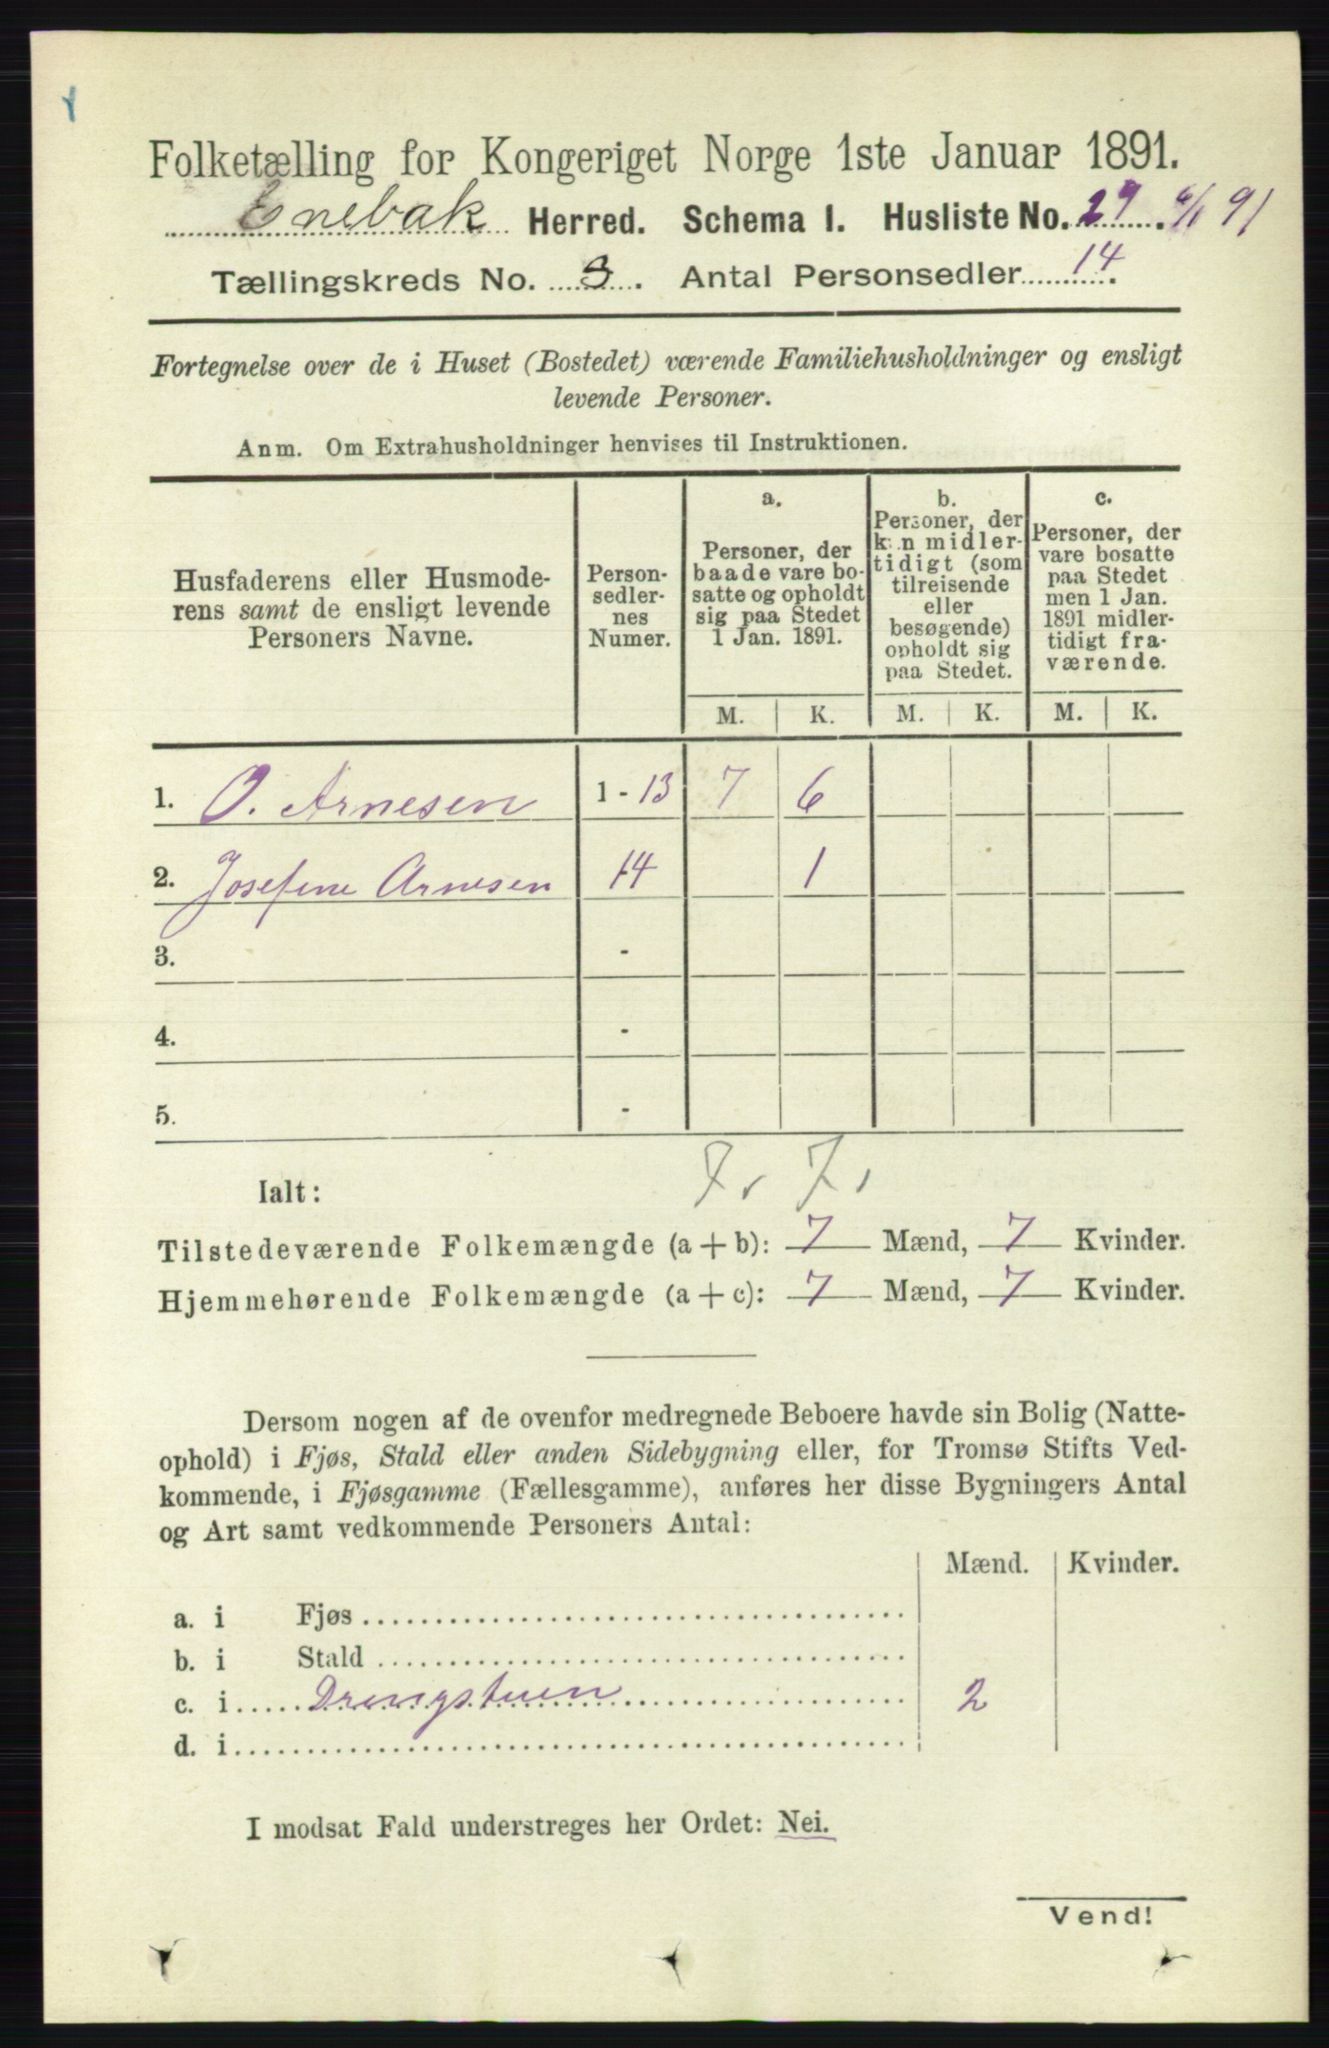 Folketælling for Kongeriget Norge 1ste Januar 1891.
Enebak Herred. Schema I. Husliste No. 29. 6/1 91
Tællingskreds No. 3. Antal Personsedler 14.
Fortegnelse over de i Huset (Bostedet) værende Familiehusholdninger og ensligt
levende Personer.
Anm. Om Extrahusholdninger henvises til Instruktionen.
Husfaderens eller Husmode-
rens samt de ensligt levende
Personers Navne.
Person-
sedler-
nes
Numer.
a.
Personer, der
baade vare bo-
satte og opholdt
sig paa Stedet
1 Jan. 1891.
b.
Personer, der
kun midler-
tidigt (som
tilreisende
eller
besøgende)
opholdt sig
paa Stedet.
c.
Personer, der
vare bosatte
paa Stedet
men 1 Jan.
1891 midler-
tidigt fra-
værende.
M. K. M. K. M. K.
1. O. Arnesen 1 - 13 7 6
2. Josefine Arnesen 14 1
3. -
4. -
5. -
7. 7.
Ialt:
Tilstedeværende Folkemængde (a + b): 7 Mænd, 7 Kvinder.
Hjemmehørende Folkemængde (a + c): 7 Mænd, 7 Kvinder.
Dersom nogen af de ovenfor medregnede Beboere havde sin Bolig (Natte-
ophold) i Fjøs, Stald eller anden Sidebygning eller, for Tromsø Stifts Ved-
kommende, i Fjøsgamme (Fællesgamme), anføres her disse Bygningers Antal
og Art samt vedkommende Personers Antal:
Mænd. Kvinder.
a. i Fjøs
b. i Stald
c. i Drengstuen 2
d. i
I modsat Fald understreges her Ordet: Nei.
Vend!